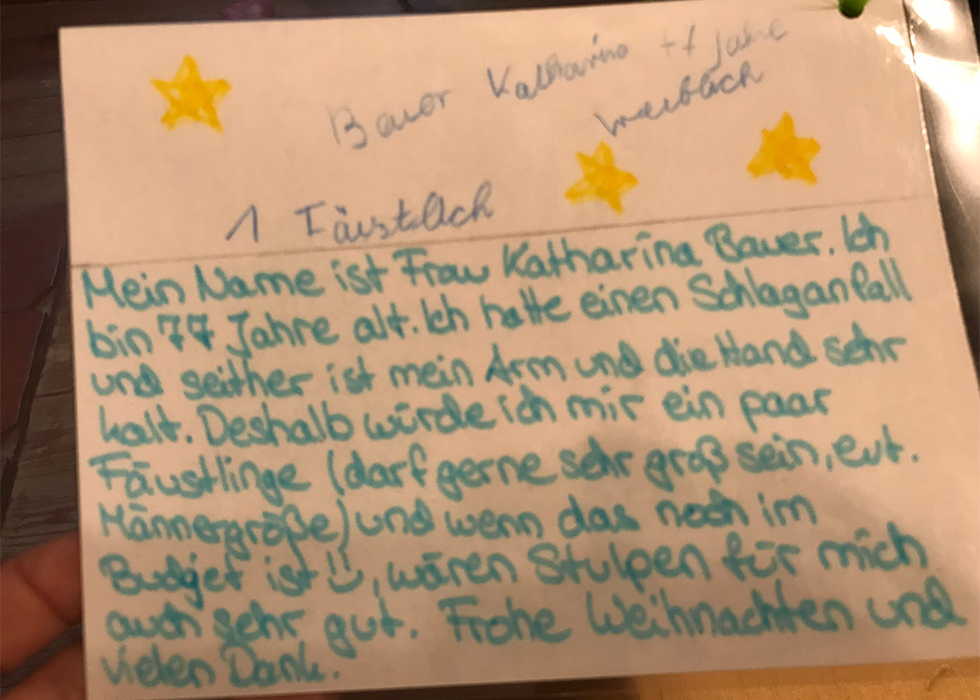 Bauer Katharina 77 Jahre
weiblich
1 Fäustlich
Mein Name ist Frau Katharina Bauer. Ich
bin 77 Jahre alt. Ich hatte einen Schlaganfall
und seither ist mein Arm und die Hand sehr
kalt. Deshalb würde ich mir ein paar
Fäustlinge (darf gerne sehr groß sein, evt.
Männergröße) und wenn das noch im
Budget ist, wären Stulpen für mich
auch sehr gut. Frohe Weihnachten und
vielen Dank.